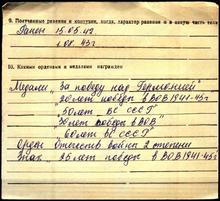 9. Полученные ранения и контузии, когда, характер ранения и в какую часть тела
Ранен 15.05.42
1.08.43г
10. Какими орденами и медалями награжден
Медали „За победу над Германией"
20 лет победы в ВОВ 1941-45г
„50 лет ВС СССР"
30 лет победы в ВОВ
„60 лет ВС СССР"
Орден Отечеств войны 2 степени
Знак „25 лет победы в ВОВ 1941-45г